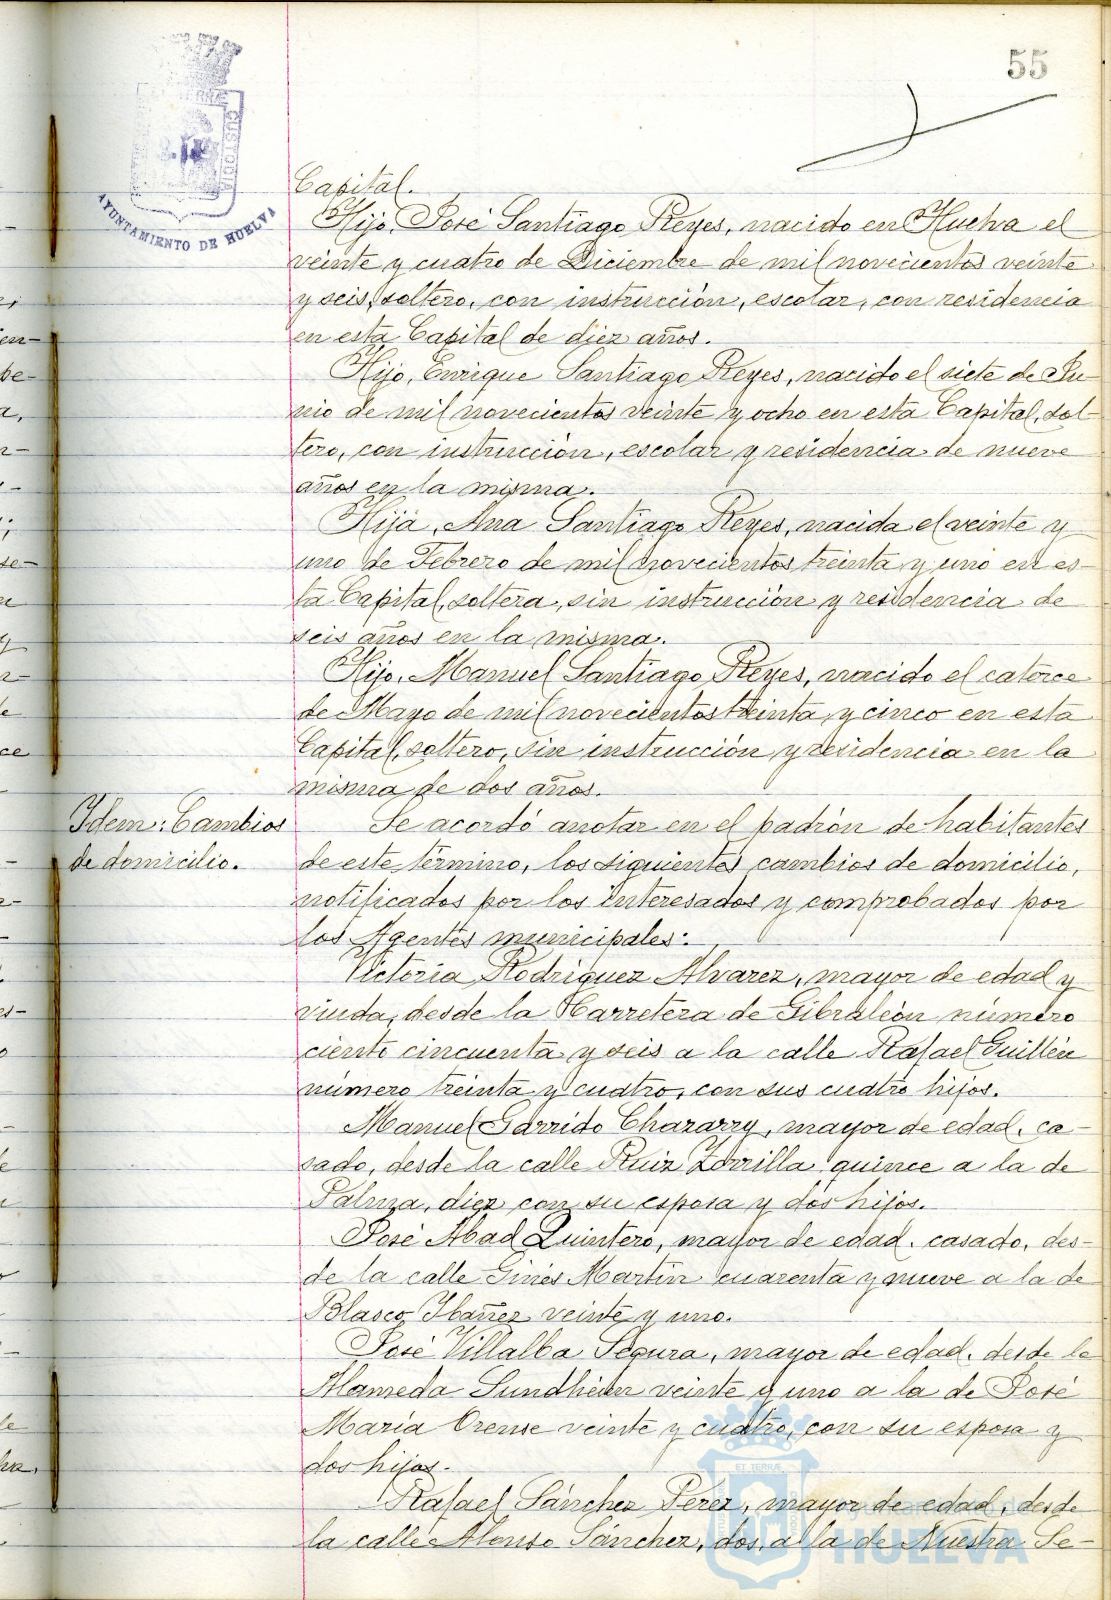 55
TERRÆ
CUSTODIA
AYUNTAMIENTO DE HUELVA
Capital.
Hijo, José Santiago Reyes, nacido en Huelva el
veinte y cuatro de Diciembre de mil novecientos veinte
y seis, soltero, con instrucción, escolar, con residencia
en esta Capital de diez años.
Hijo, Enrique Santiago Reyes, nacido el siete de Ju-
nio de mil novecientos veinte y ocho en esta Capital, sol-
tero, con instrucción, escolar y residencia de nueve
años en la misma.
Hija, Ana Santiago Reyes, nacida el veinte y
uno de Febrero de mil novecientos treinta y uno en es-
ta Capital, soltera, sin instrucción y residencia de
seis años en la misma.
Hijo, Manuel Santiago Reyes, nacido el catorce
de Mayo de mil novecientos treinta y cinco en esta
Capital, soltero, sin instrucción y residencia en la
misma de dos años.
Idem: Cambios
de domicilio.
Se acordó anotar en el padrón de habitantes
de este término, los siguientes cambios de domicilio,
notificados por los interesados y comprobados por
los Agentes municipales:
Victoria Rodriguez Alvarez, mayor de edad y
viuda, desde la Carretera de Gibraleón número
ciento cincuenta y seis a la calle Rafael Guillén
número treinta y cuatro, con sus cuatro hijos.
Manuel Garrido Chazarry, mayor de edad, ca-
sado, desde la calle Ruiz Zorrilla quince a la de
Palma, diez con su esposa y dos hijos.
José Abad Quintero, mayor de edad, casado, des-
de la calle Ginés Martín cuarenta y nueve a la de
Blasco Ibañez veinte y uno.
José Villalba Segura, mayor de edad, desde la
Alameda Sundheim veinte y uno a la de José
María Orense veinte y cuatro, con su esposa y
dos hijos.
Rafael Sánchez Pérez, mayor de edad, desde
la calle Alonso Sánchez, dos, a la de Nuestra Se-
ET TERRÆ
Ayuntamiento de
HUELVA